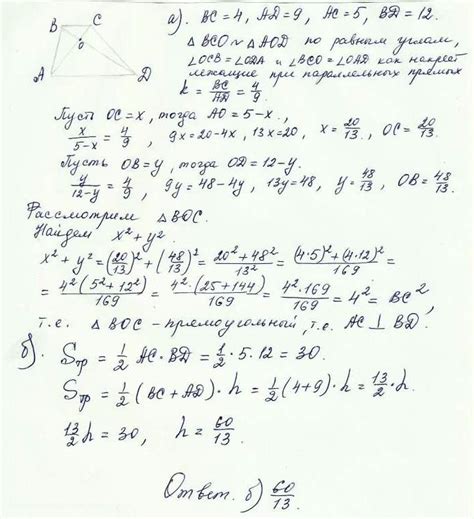 B C
O
A D
а). BC = 4, AD = 9, AC = 5, BD = 12.
△BCO ~ △AOD по равным углам,
∠OCB = ∠ODA и ∠BCO = ∠OAD как накрест
лежащие при параллельных прямых
k = BC/AD = 4/9.
Пусть OC = x, тогда AO = 5 - x.
x/(5-x) = 4/9, 9x = 20 - 4x, 13x = 20, x = 20/13, OC = 20/13.
Пусть OB = y, тогда OD = 12 - y.
y/(12-y) = 4/9, 9y = 48 - 4y, 13y = 48, y = 48/13, OB = 48/13.
Рассмотрим △BOC.
Найдем x² + y².
x² + y² = (20/13)² + (48/13)² = (20² + 48²)/13² = ((4·5)² + (4·12)²)/169 =
= 4²(5² + 12²)/169 = 4²·(25 + 144)/169 = 4²·169/169 = 4² = BC²,
т.е. △BOC - прямоугольный, т.е. AC ⊥ BD.
б). Sтр = 1/2 AC · BD = 1/2 · 5 · 12 = 30.
Sтр = 1/2 (BC + AD) · h = 1/2 (4 + 9) · h = 13/2 · h.
13/2 h = 30, h = 60/13.
Ответ. б) 60/13.